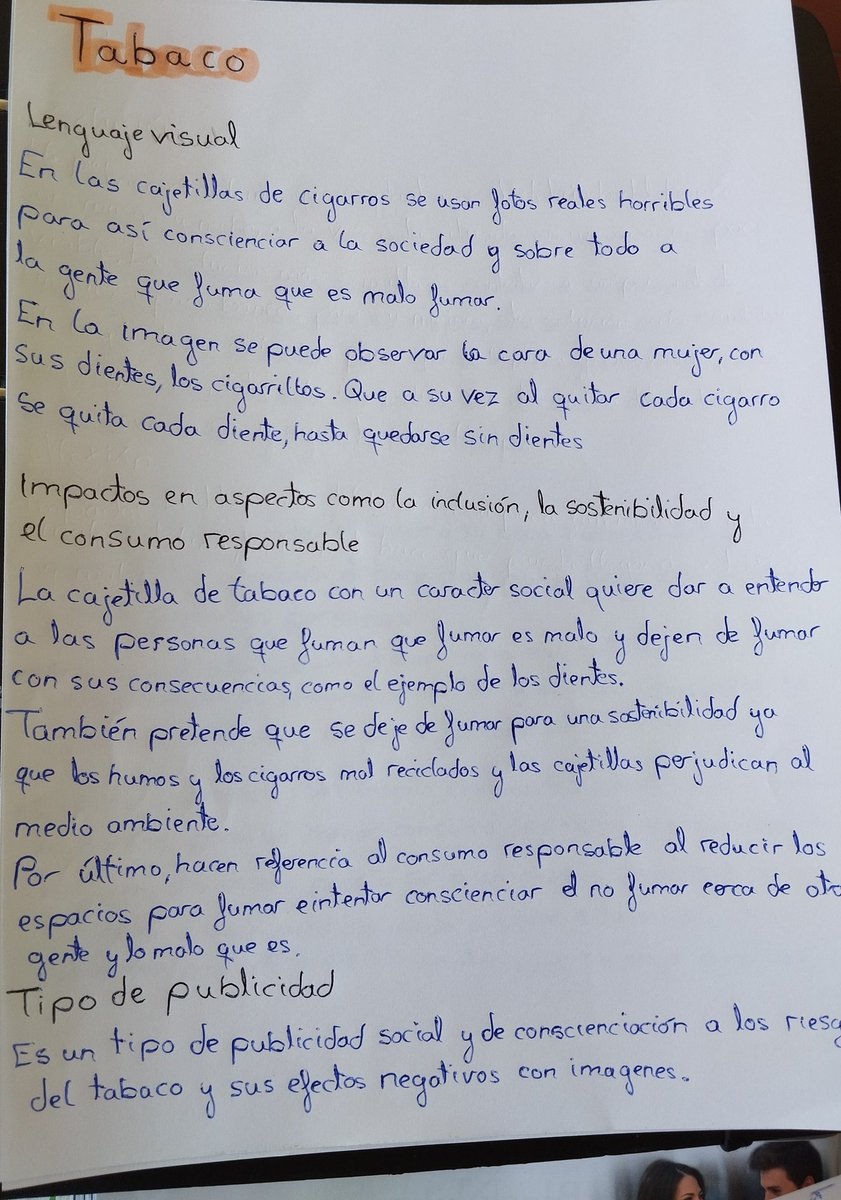 Tabaco
Lenguaje visual
En las cajetillas de cigarros se usan fotos reales horribles
para así conscienciar a la sociedad y sobre todo a
la gente que fuma que es malo fumar.
En la imagen se puede observar la cara de una mujer, con
sus dientes, los cigarrillos. Que a su vez al quitar cada cigarro
se quita cada diente, hasta quedarse sin dientes
Impactos en aspectos como la inclusión, la sostenibilidad y
el consumo responsable
La cajetilla de tabaco con un caracter social quiere dar a entender
a las personas que fuman que fumar es malo y dejen de fumar
con sus consecuencias, como el ejemplo de los dientes.
También pretende que se deje de fumar para una sostenibilidad ya
que los humos y los cigarros mal reciclados y las cajetillas perjudican al
medio ambiente.
Por último, hacen referencia al consumo responsable al reducir los
espacios para fumar e intentar conscienciar el no fumar cerca de otr
gente y lo malo que es.
Tipo de publicidad
Es un tipo de publicidad social y de conscienciación a los riesg
del tabaco y sus efectos negativos con imagenes.